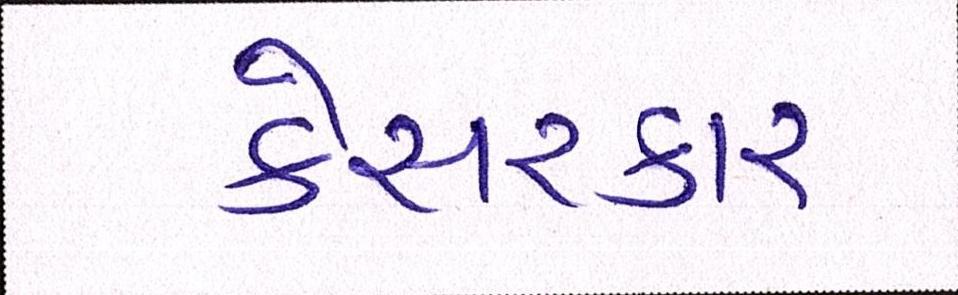 કેસરકાર